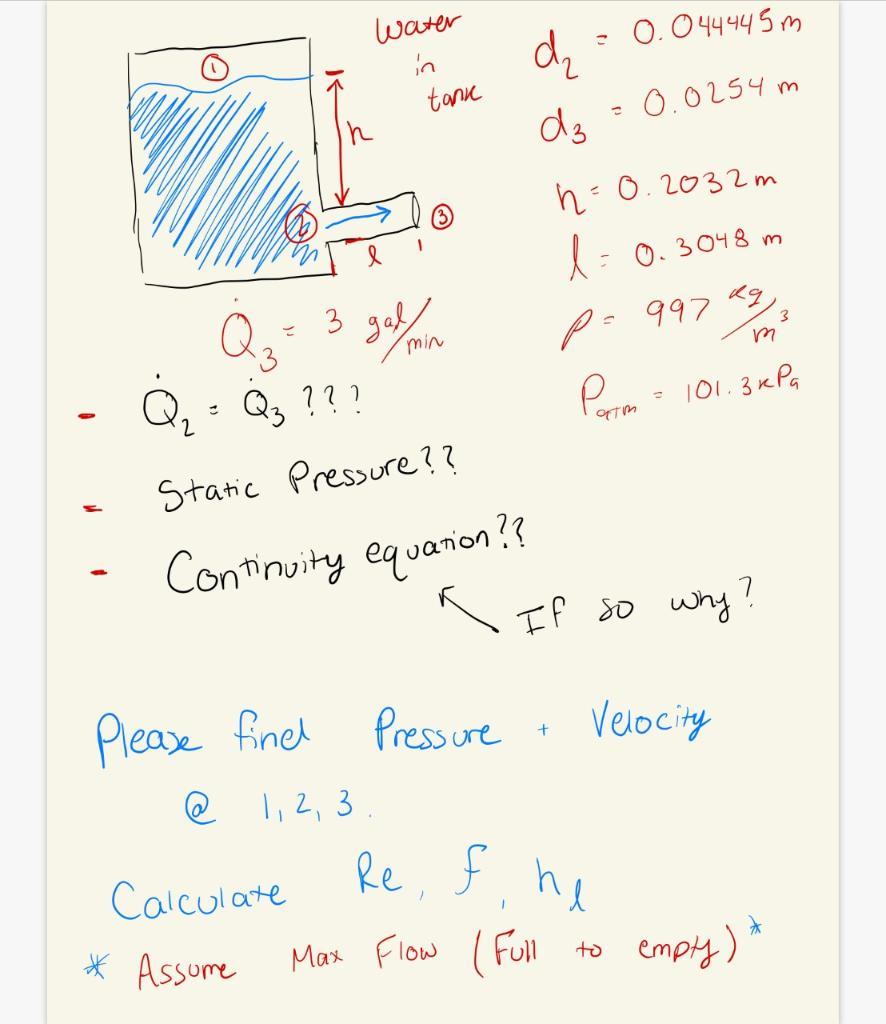 Water
in
tank
①
h
②
③
l
d₂ = 0.04445 m
d₃ = 0.0254 m
h = 0.2032 m
l = 0.3048 m
ρ = 997 kg/m³
Patm = 101.3 kPa
Q̇₃ = 3 gal/min
- Q̇₂ = Q̇₃ ???
- Static Pressure??
- Continuity equation??
If so why?
Please find Pressure + Velocity
@ 1, 2, 3.
Calculate Re, f, hl
* Assume Max Flow (Full to empty) *